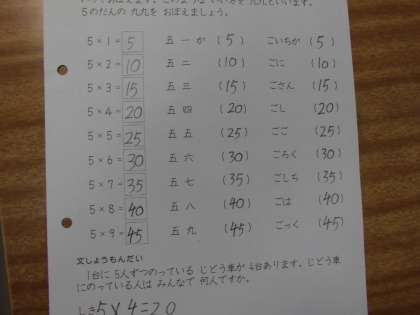 5のだんの 九九を おぼえましょう。
5×1=5 五一が (5) ごいちが (5)
5×2=10 五二 (10) ごに (10)
5×3=15 五三 (15) ごさん (15)
5×4=20 五四 (20) ごし (20)
5×5=25 五五 (25) ごご (25)
5×6=30 五六 (30) ごろく (30)
5×7=35 五七 (35) ごしち (35)
5×8=40 五八 (40) ごは (40)
5×9=45 五九 (45) ごっく (45)
文しょうもんだい
1台に 5人ずつのっている じどう車が 4台あります。じどう車
にのっている人は みんなで 何人ですか。
しき5×4=20